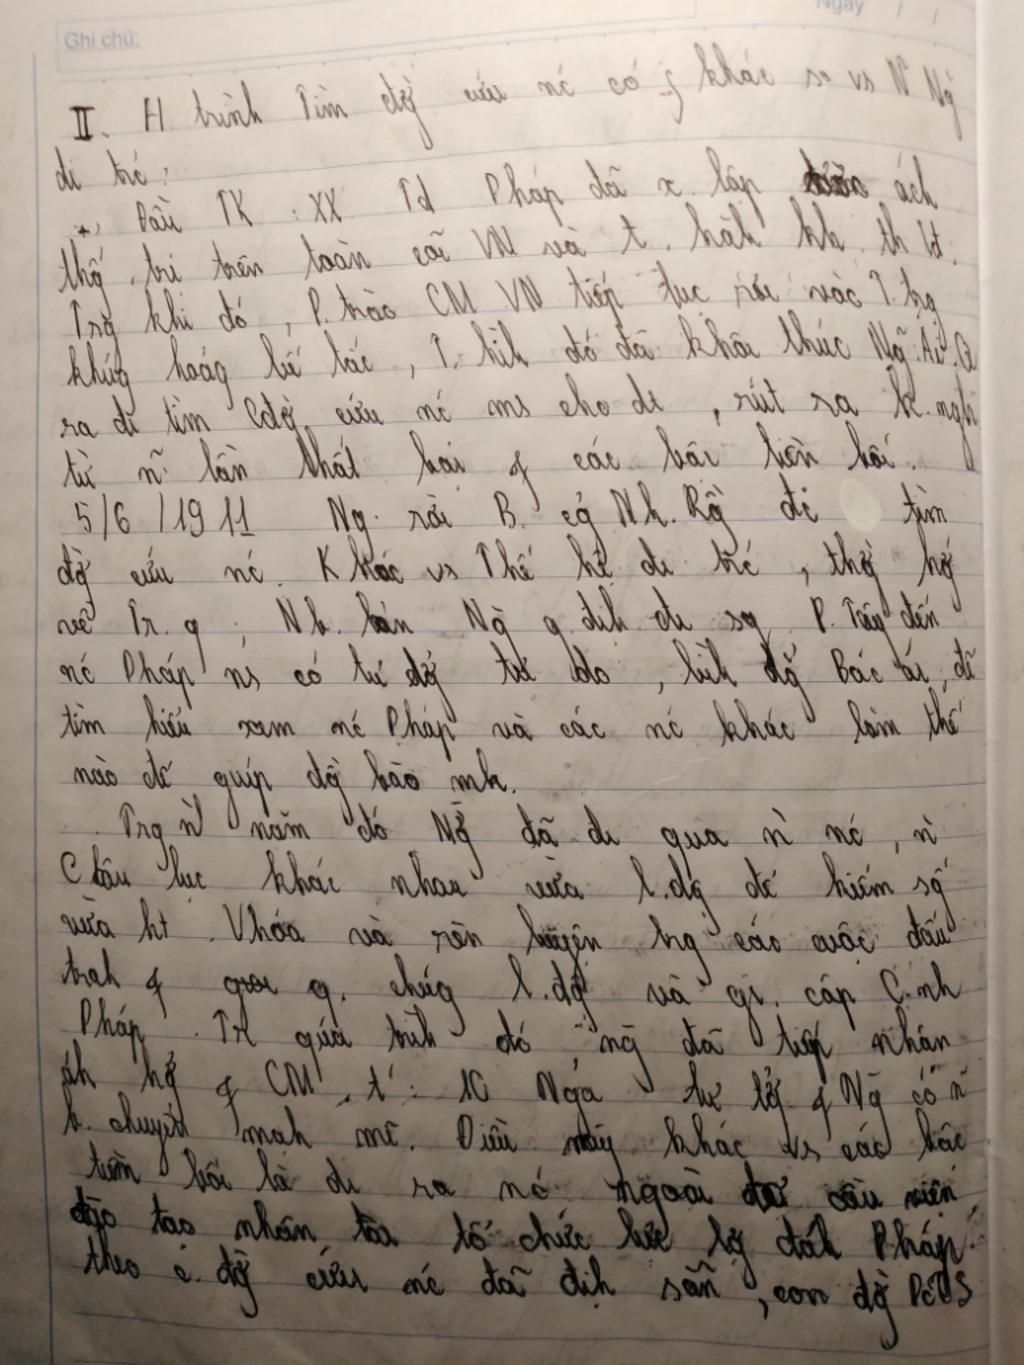 Ghi chú:
Ngày / /
II. H trình Tìm đg cứu nc có j khác so vs N Ng
đi trc:
+, Đầu TK : XX Td Pháp đã x. lập ách
thố. trị trên toàn cõi VN và t. hàh kh. th lđ.
Trg khi đó, P. trào CM VN tiếp tục rơi vào T. trg
khủg hoảg bế tắc, T. hìh đó đã khôi thúc Ng~. Ái. Q
ra đi tìm Cđg cứu nc ms cho dt, rút ra k. ngh
từ n~ lần thất bại of các bậc tiền bối.
5/6/1911 Ng. rời B. cg Nh. Rồg đi tìm
đg cứu nc. Khác vs Thế hệ đi trc, thg hg
về Tr. q, Nh. bản Ng q. địh đi sg P. Tây đến
nc Pháp ns có tư đg tự do, bìh đg Bác ái, để
tìm hiểu xem nc Pháp và các nc khác làm thế
nào để giúp đg bào mh.
Trg n~ năm đó Ng đã đi qua n` nc, n`
Châu lục khác nhau vừa l. đg để kiếm sg
vừa ht. Vhóa và rèn luyện trg các cuộc đấu
trah of giai q. chúg l. độg và gi. cấp C. nh
Pháp. Tr quá trìh đó, ng đã tiếp nhận
ảh hg of CM. t : 10 Nga tư tg of Ng có n~
b. chuyển mạh mẽ. Điều này khác vs các bậc
tiền bối là đi ra nc ngoài để cầu viện,
đào tạo nhân tài tổ chức lực lg đáh Pháp
theo c. đg cứu nc đã địh sẵn, con đg DCTS